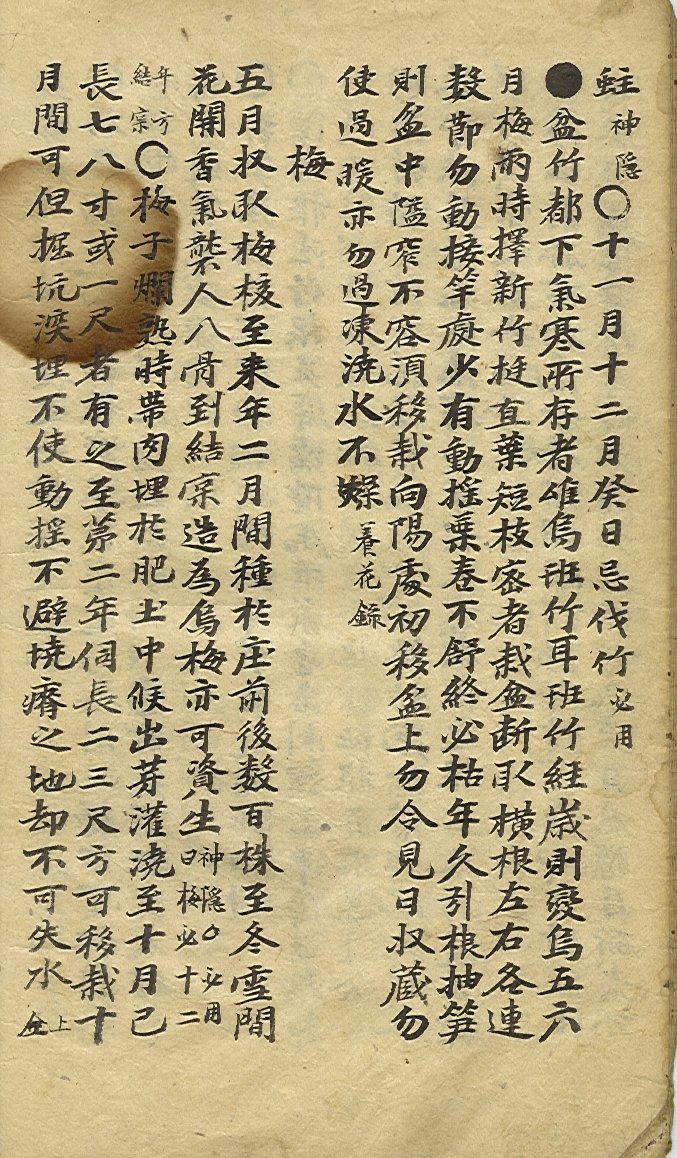 蛀神隱〇十一月十二月癸日忌伐竹必用
●盆竹都下氣寒所存者雄烏班竹耳班竹経歲則變烏五六
月梅雨時擇新竹挺直葉短枝密者栽盆断取橫根左右各連
数節勿動接竿處少有動搖葉卷不舒終必枯年久引根抽笋
則盆中隘窄不容須移栽向陽處初移盆上勿令見日収藏勿
使過暖亦勿過凍澆水不燥養花錄
梅
五月収取梅核至来年二月間種於庄前後数百株至冬雪間
花開香氣襲人入骨到結实造為烏梅亦可資生神隱〇必用曰梅必十二
年方結实〇梅子爛熟時帶肉埋於肥土中候出芽灌澆至十月已
長七八寸或一尺者有之至第二年個長二三尺方可移栽十
月間可但掘坑深埋不使動搖不避墝瘠之地却不可失水仝上